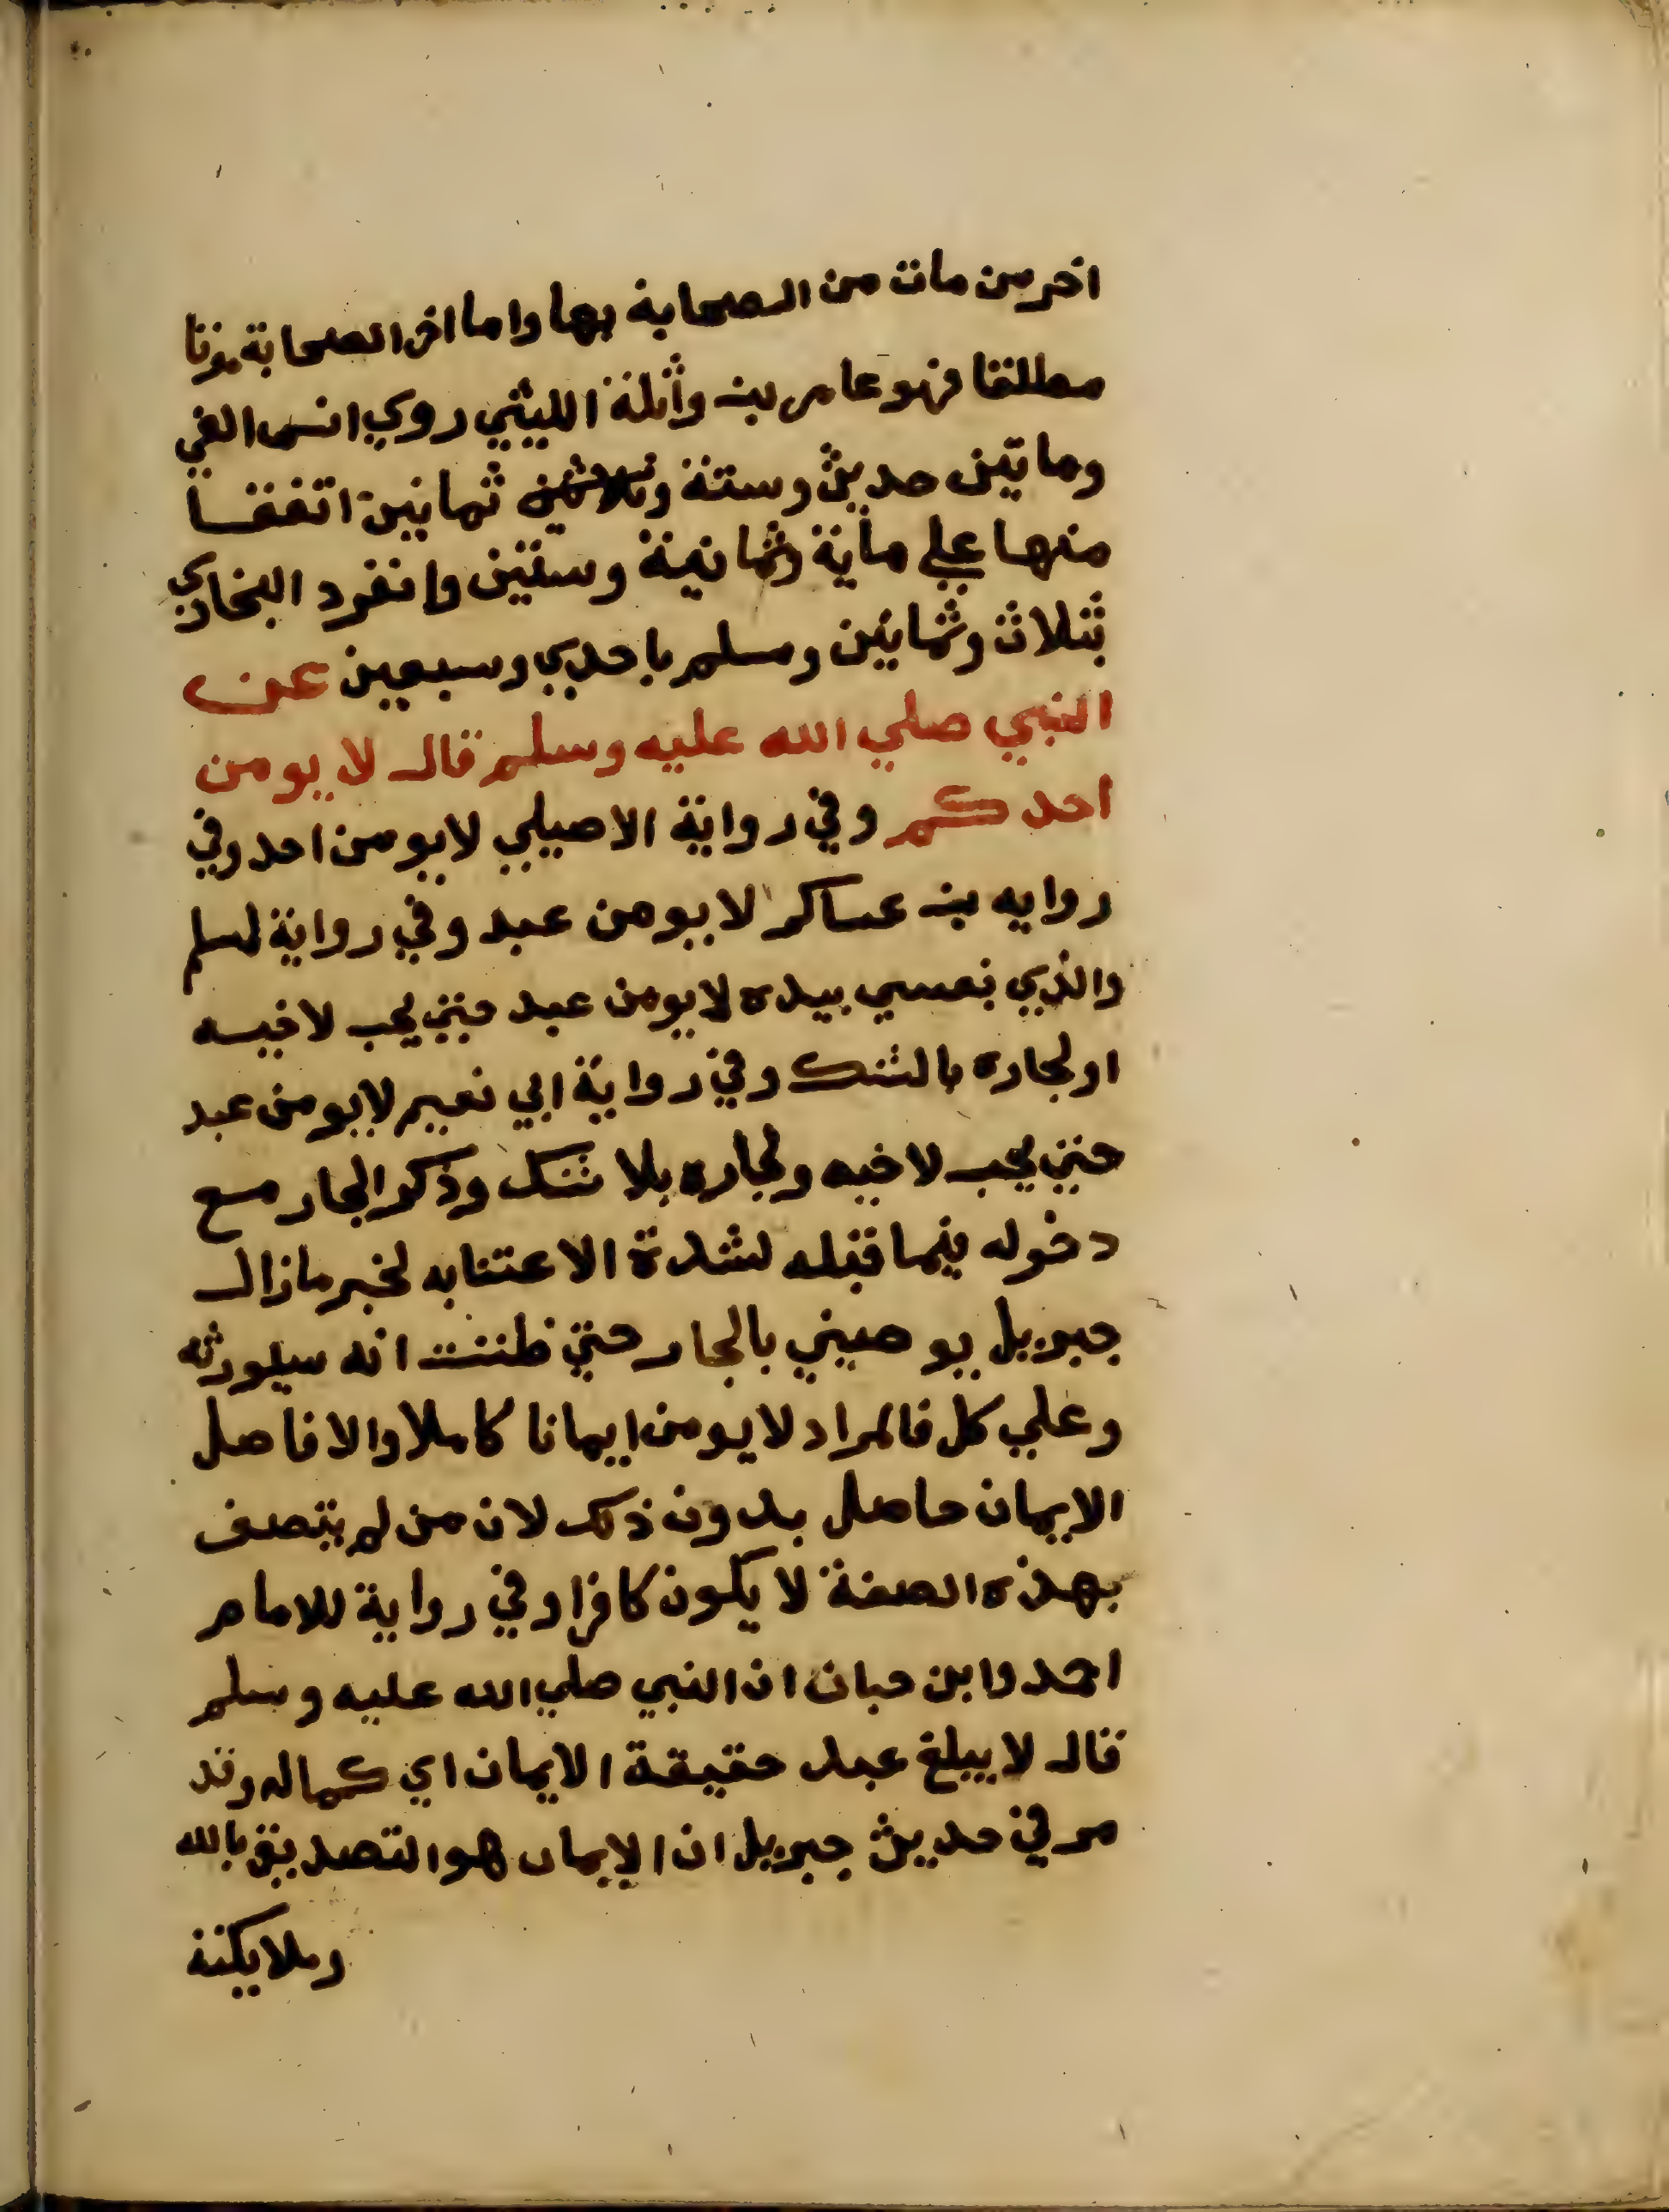 اخر من مات من الصحابة بها واما اخر الصحابة موتا
مطلقا فهو عامر بن واثلة الليثي روي انس الفي
ومايتين حديث وستة وثلاثين ثمانين اتفقا
منها علي ماية وثمانية وستين وانفرد البخاري
بثلاث وثمانين ومسلم باحدي وسبعين عن
النبي صلي الله عليه وسلم قال لا يومن
احدكم وفي رواية الاصيلي لا يومن احد وفي
روايه بن عساكر لا يومن عبد وفي رواية لمسلم
والذي نفسي بيده لا يومن عبد حتي يحب لاخيه
او لجاره بالشك وفي رواية ابي نعيم لا يومن عبد
حتي يحب لاخيه ولجاره بلا شك وذكر الجار مع
دخوله فيما قبله لشدة الاعتنا به لخبر ما زال
جبريل يوصيني بالجار حتي ظننت انه سيورثه
وعلي كل فالمراد لا يومن ايمانا كاملا والا فاصل
الايمان حاصل بدون ذلك لان من لم يتصف
بهذه الصفة لا يكون كافرا وفي رواية للامام
احمد وابن حبان ان النبي صلي الله عليه وسلم
قال لا يبلغ عبد حقيقة الايمان اي كماله وقد
مر في حديث جبريل ان الايمان هو التصديق بالله
وملايكته